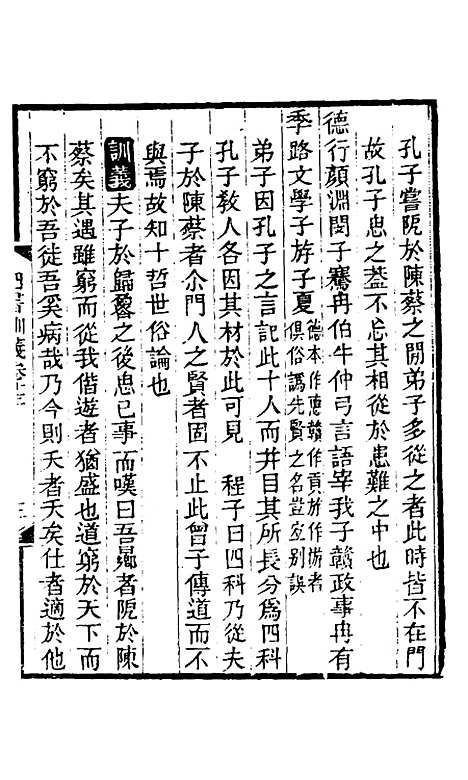 孔子嘗阨於陳蔡之閒弟子多從之者此時皆不在門
故孔子思之葢不忘其相從於患難之中也
德行顏淵閔子騫冉伯牛仲弓言語宰我子贛政事冉有
季路文學子斿子夏德本作悳贛作貢斿作游者
俱俗譌先賢之名豈应别誤
弟子因孔子之言記此十人而并目其所長分爲四科
孔子敎人各因其材於此可見　程子曰四科乃從夫
子於陳蔡者尒門人之賢者固不止此曾子傳道而不
與焉故知十哲世俗論也
訓義夫子於歸魯之後思已事而嘆曰吾曏者阨於陳
蔡矣其遇雖窮而從我偕遊者猶盛也道窮於天下而
不窮於吾徒吾奚病哉乃今則夭者夭矣仕者適於他
四書訓義